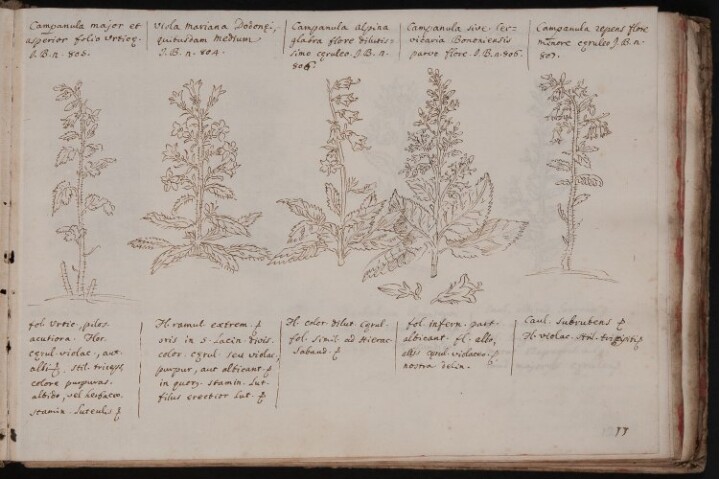 Campanula major et
asperior folio Urticę.
J. B. n. 805.
Viola Mariana Dodonęi,
quibusdam Medium
J. B. n. 804.
Campanula alpina
glabra flore dilutis-
simo cęruleo. J. B. n.
806.
Campanula sive Cer-
vicaria Bononiensis
parvo flore. J. B. n. 806.
Campanula repens flore
minore cęruleo J. B. n.
807.
fol. Urtic. pilos.
acutiora. Flor.
cęrul violac. aut
albi. stil.
colore purpuras.
albido, vel herbaceo
stamin. luteolis
Fl. ramul extrem.
oris in 5. Lacin divis.
color. cęrul seu violac,
purpur, aut albicant.
in quorum stamin. Lut.
Fl. color dilut. cęrul.
fol. simil. ad Hierac.
Sabaud.
fol. infern. part.
albicant. fl. albo,
cęrul violaceo.
nostra delin.
Caul. subrubens
Fl. violac. stil.
77